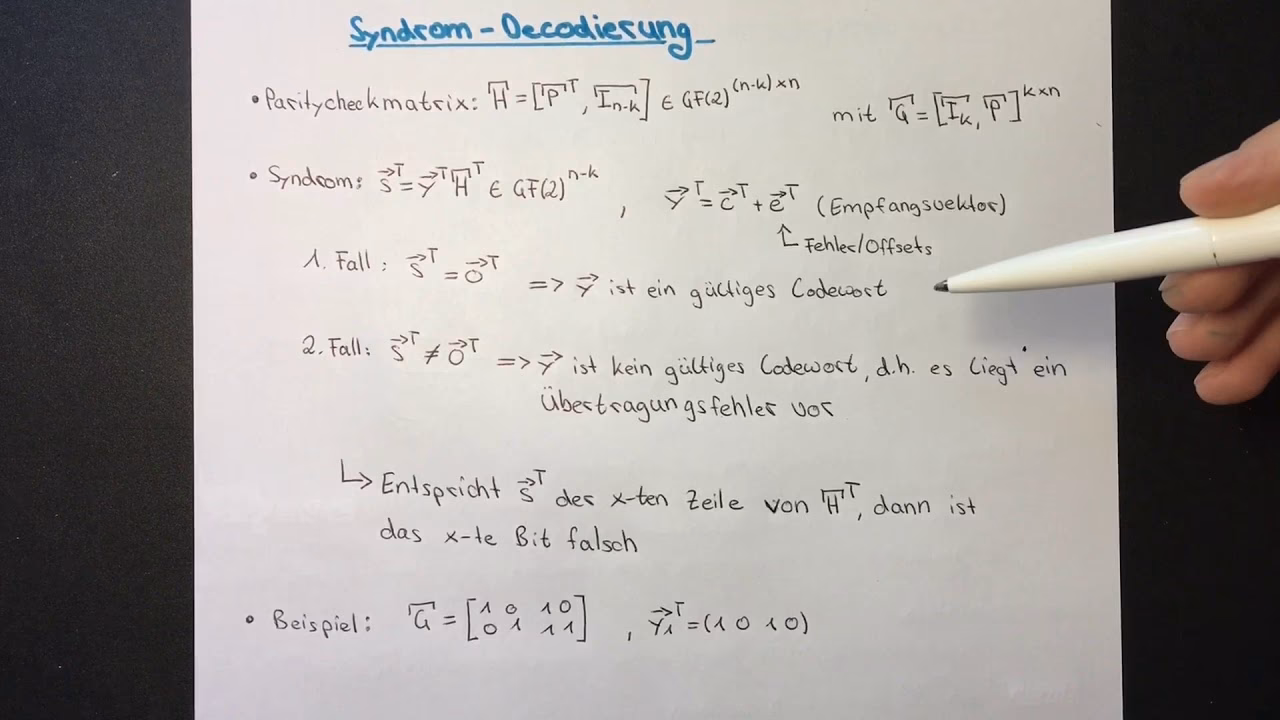 Syndrom-Decodierung
• Paritycheckmatrix: H̅ = [P̅ᵀ, I̅ₙ₋ₖ] ∈ GF(2)^(n-k)×n mit G̅ = [I̅ₖ, P̅]^k×n
• Syndrom: s⃗ᵀ = y⃗ᵀ H̅ᵀ ∈ GF(2)^n-k , y⃗ᵀ = c⃗ᵀ + e⃗ᵀ (Empfangsvektor)
↑ Fehler/Offsets
1. Fall: s⃗ᵀ = 0⃗ᵀ => y⃗ ist ein gültiges Codewort
2. Fall: s⃗ᵀ ≠ 0⃗ᵀ => y⃗ ist kein gültiges Codewort, d.h. es liegt ein
Übertragungsfehler vor
↳ Entspricht s⃗ᵀ der x-ten Zeile von H̅ᵀ, dann ist
das x-te Bit falsch
• Beispiel: G̅ = [1 0 1 0
0 1 1 1] , y⃗₁ᵀ = (1 0 1 0)